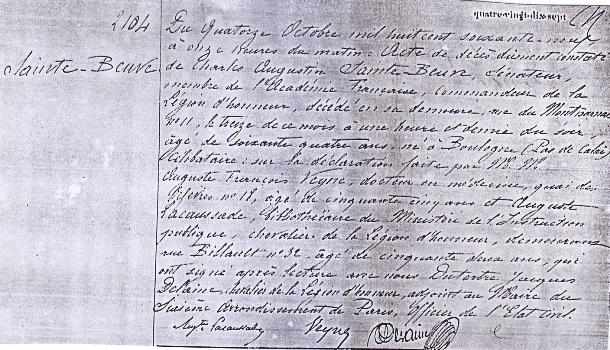 quatre-vingt-dix-sept
2184
Sainte-Beuve
Du Quatorze Octobre mil huit cent soixante-neuf
à onze heures du matin. Acte de décès dûment constaté
de Charles Augustin Sainte-Beuve, Sénateur,
membre de l'Académie Française, Commandeur de la
Légion d'honneur, décédé en sa demeure, rue du Montparnasse
n° 11, le treize de ce mois à une heure et demie du soir,
âgé de soixante quatre ans, né à Boulogne (Pas de Calais)
célibataire : sur la déclaration faite par M.M.
Auguste François Veyne, docteur en médecine, quai des
Orfèvres n° 18, âgé de cinquante cinq ans et Auguste
Lacaussade, bibliothécaire du Ministère de l'Instruction
publique, chevalier de la Légion d'honneur, demeurant
rue Billault n° 32, âgé de cinquante deux ans, qui
ont signé après lecture avec nous Dutartre Jacques
chevalier de la Légion d'honneur, adjoint au Maire du
Sixième Arrondissement de Paris, Officier de l'Etat Civil.
Aug. Lacaussade Veyne